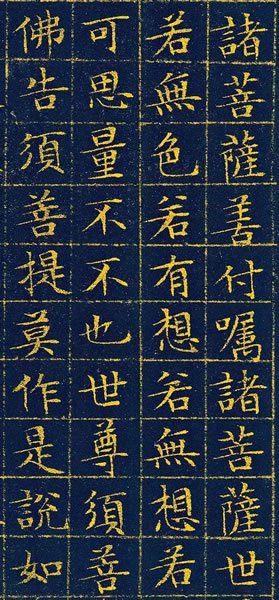 諸菩薩善付嘱諸菩薩世
若無色若有想若無想若
可思量不不也世尊須菩
佛告須菩提莫作是說如